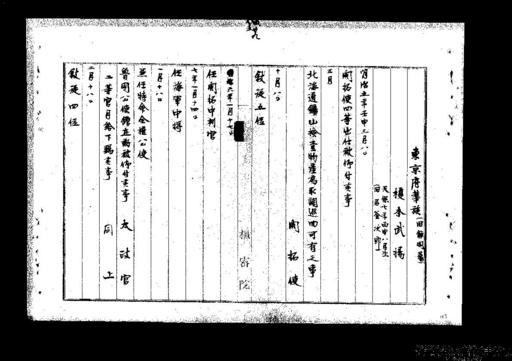 東京府華族
榎本武揚
天保七年丙申八月生
明治五年壬申三月八日
開拓使四等出仕被仰付候事
五月
北海道鑛山検査物産為取調巡回可有之事
開拓使
十月十八日
敘從五位
六年一月十七日
任開拓中判官
七年一月十四日
任海軍中将
一月十八日
兼任特命全權公使
魯国公使館在勤被仰付候事 太政官
二等官月給下賜候事 同上
二月十八日
敘從四位
樞密院